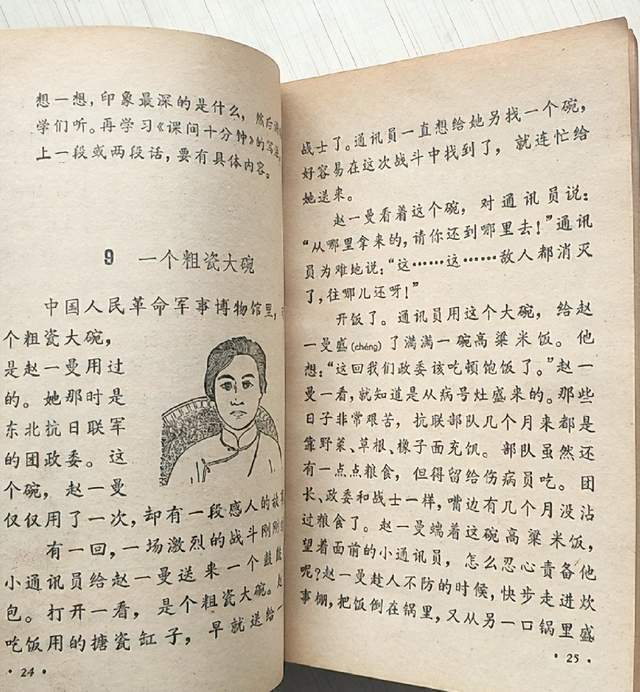 想一想，印象最深的是什么，然后
学们听。再学习《课间十分钟》的写
上一段或两段话，要有具体内容。
9 一个粗瓷大碗
中国人民革命军事博物馆里，
个粗瓷大碗，
是赵一曼用过
的。她那时是
东北抗日联军
的团政委。这
个碗，赵一曼
仅仅用了一次，却有一段感人的故事
有一回，一场激烈的战斗刚刚
小通讯员给赵一曼送来一个鼓鼓
包。打开一看，是个粗瓷大碗。
吃饭用的搪瓷缸子，早就送给一
·24·
战士了。通讯员一直想给她另找一个碗，
好容易在这次战斗中找到了，就连忙给
她送来。
赵一曼看着这个碗，对通讯员说：
“从哪里拿来的，请你还到哪里去！”通讯
员为难地说：“这……这……敌人都消灭
了，往哪儿还呀！”
开饭了。通讯员用这个大碗，给赵
一曼盛(chéng)了满满一碗高粱米饭。他
想：“这回我们政委该吃顿饱饭了。”赵一
曼一看，就知道是从病号灶盛来的。那些
日子非常艰苦，抗联部队几个月来都是
靠野菜、草根、橡子面充饥。部队虽然还
有一点点粮食，但得留给伤病员吃。团
长、政委和战士一样，嘴边有几个月没沾
过粮食了。赵一曼端着这碗高粱米饭，
望着面前的小通讯员，怎么忍心责备他
呢？赵一曼趁人不防的时候，快步走进炊
事棚，把饭倒在锅里，又从另一口锅里盛
·25·